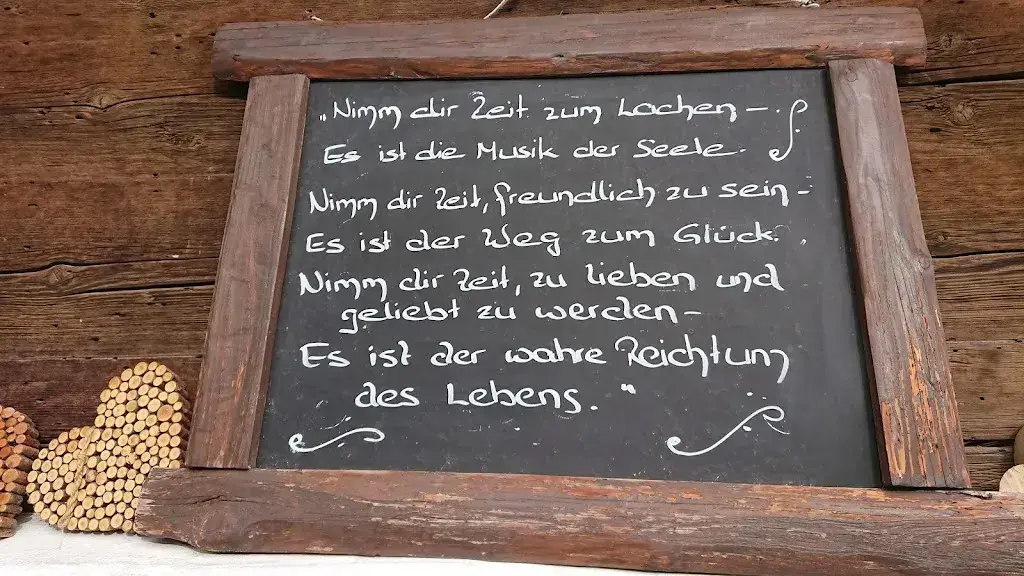 „Nimm dir Zeit zum Lachen –
Es ist die Musik der Seele.
Nimm dir Zeit, freundlich zu sein –
Es ist der Weg zum Glück.
Nimm dir Zeit, zu lieben und
geliebt zu werden –
Es ist der wahre Reichtum
des Lebens.“